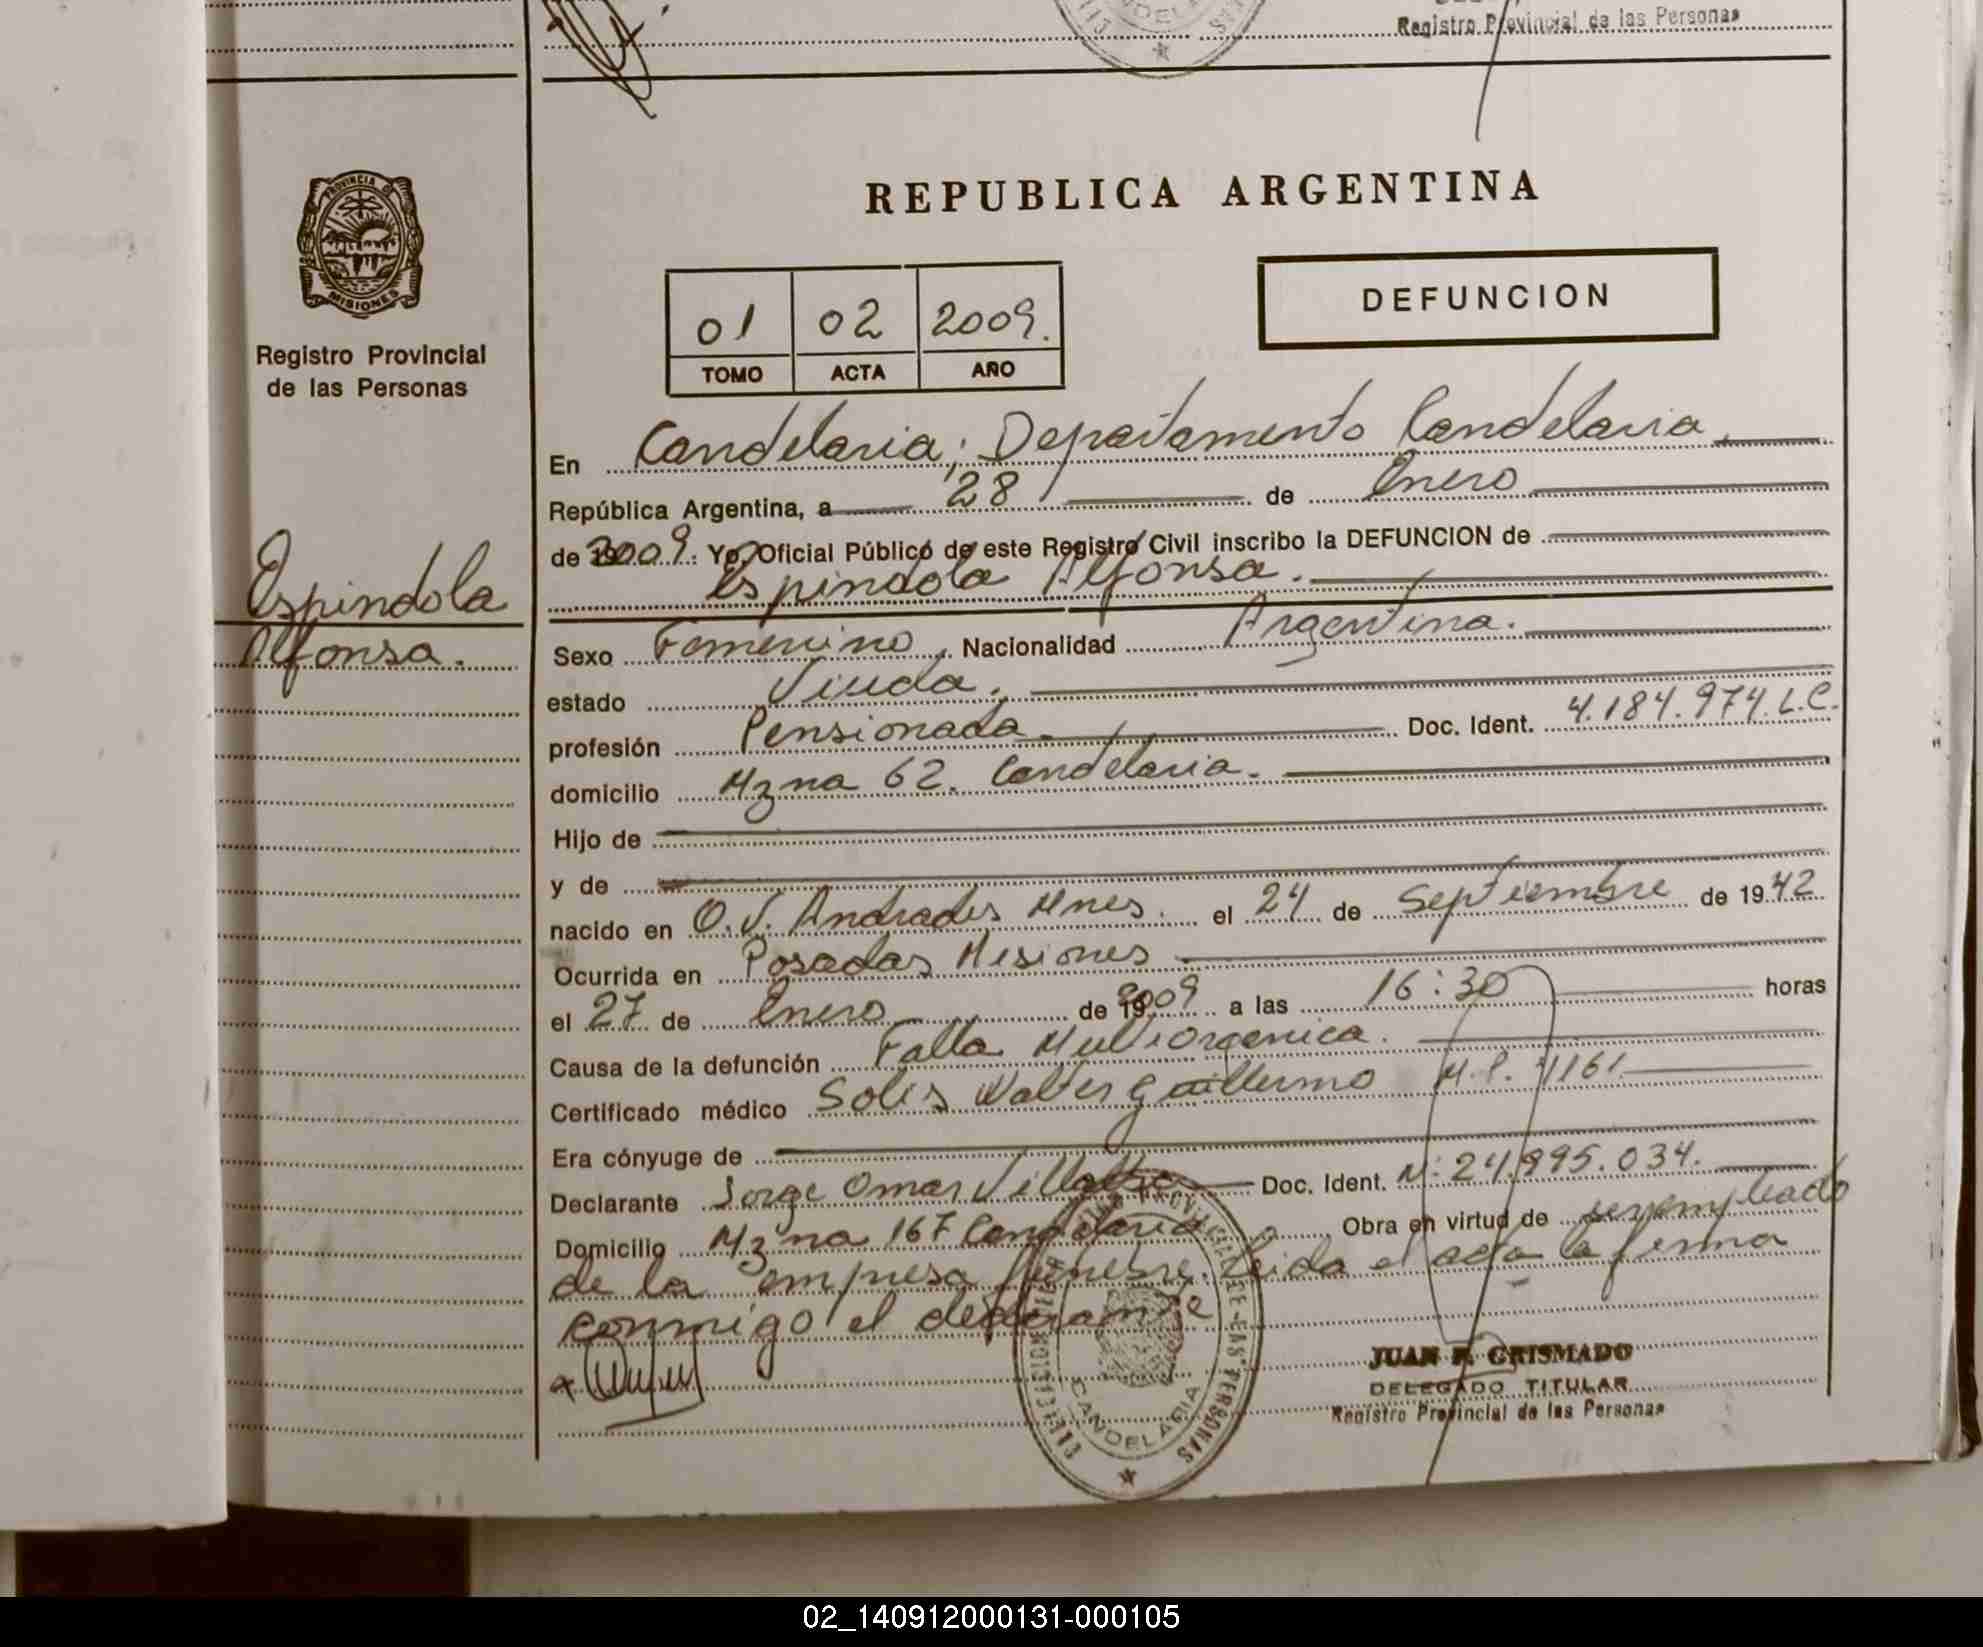 Registro Provincial de las Personas
PROVINCIA D
MISIONES
Registro Provincial
de las Personas
REPUBLICA ARGENTINA
01 02 2009.
TOMO ACTA AÑO
DEFUNCION
En Candelaria; Departamento Candelaria.
República Argentina, a 28 de Enero
de 2009. Yo, Oficial Público de este Registro Civil inscribo la DEFUNCION de
Espindola Alfonsa.
Espindola
Alfonsa.
Sexo Femenino, Nacionalidad Argentina.
estado Viuda.
profesión Pensionada. Doc. Ident. 4.184.974 L.C.
domicilio Mzna 62. Candelaria.
Hijo de
y de
nacido en O.V. Andrades Mnes. el 24 de Septiembre de 1942
Ocurrida en Posadas Misiones
el 27 de Enero de 2009 a las 16:30 horas
Causa de la defunción Falla Multiorganica.
Certificado médico Solis Walter Guillermo M.P. 1161
Era cónyuge de
Declarante Jorge Omar Villalba Doc. Ident. N: 24.995.034.
Domicilio Mzna 167 Candelaria Obra en virtud de ser empleado
de la empresa funebre. Leida el acta la firma
conmigo el declarante
CANDELARIA
JUAN F. GRISMADO
DELEGADO TITULAR
Registro Provincial de las Personas
02_140912000131-000105